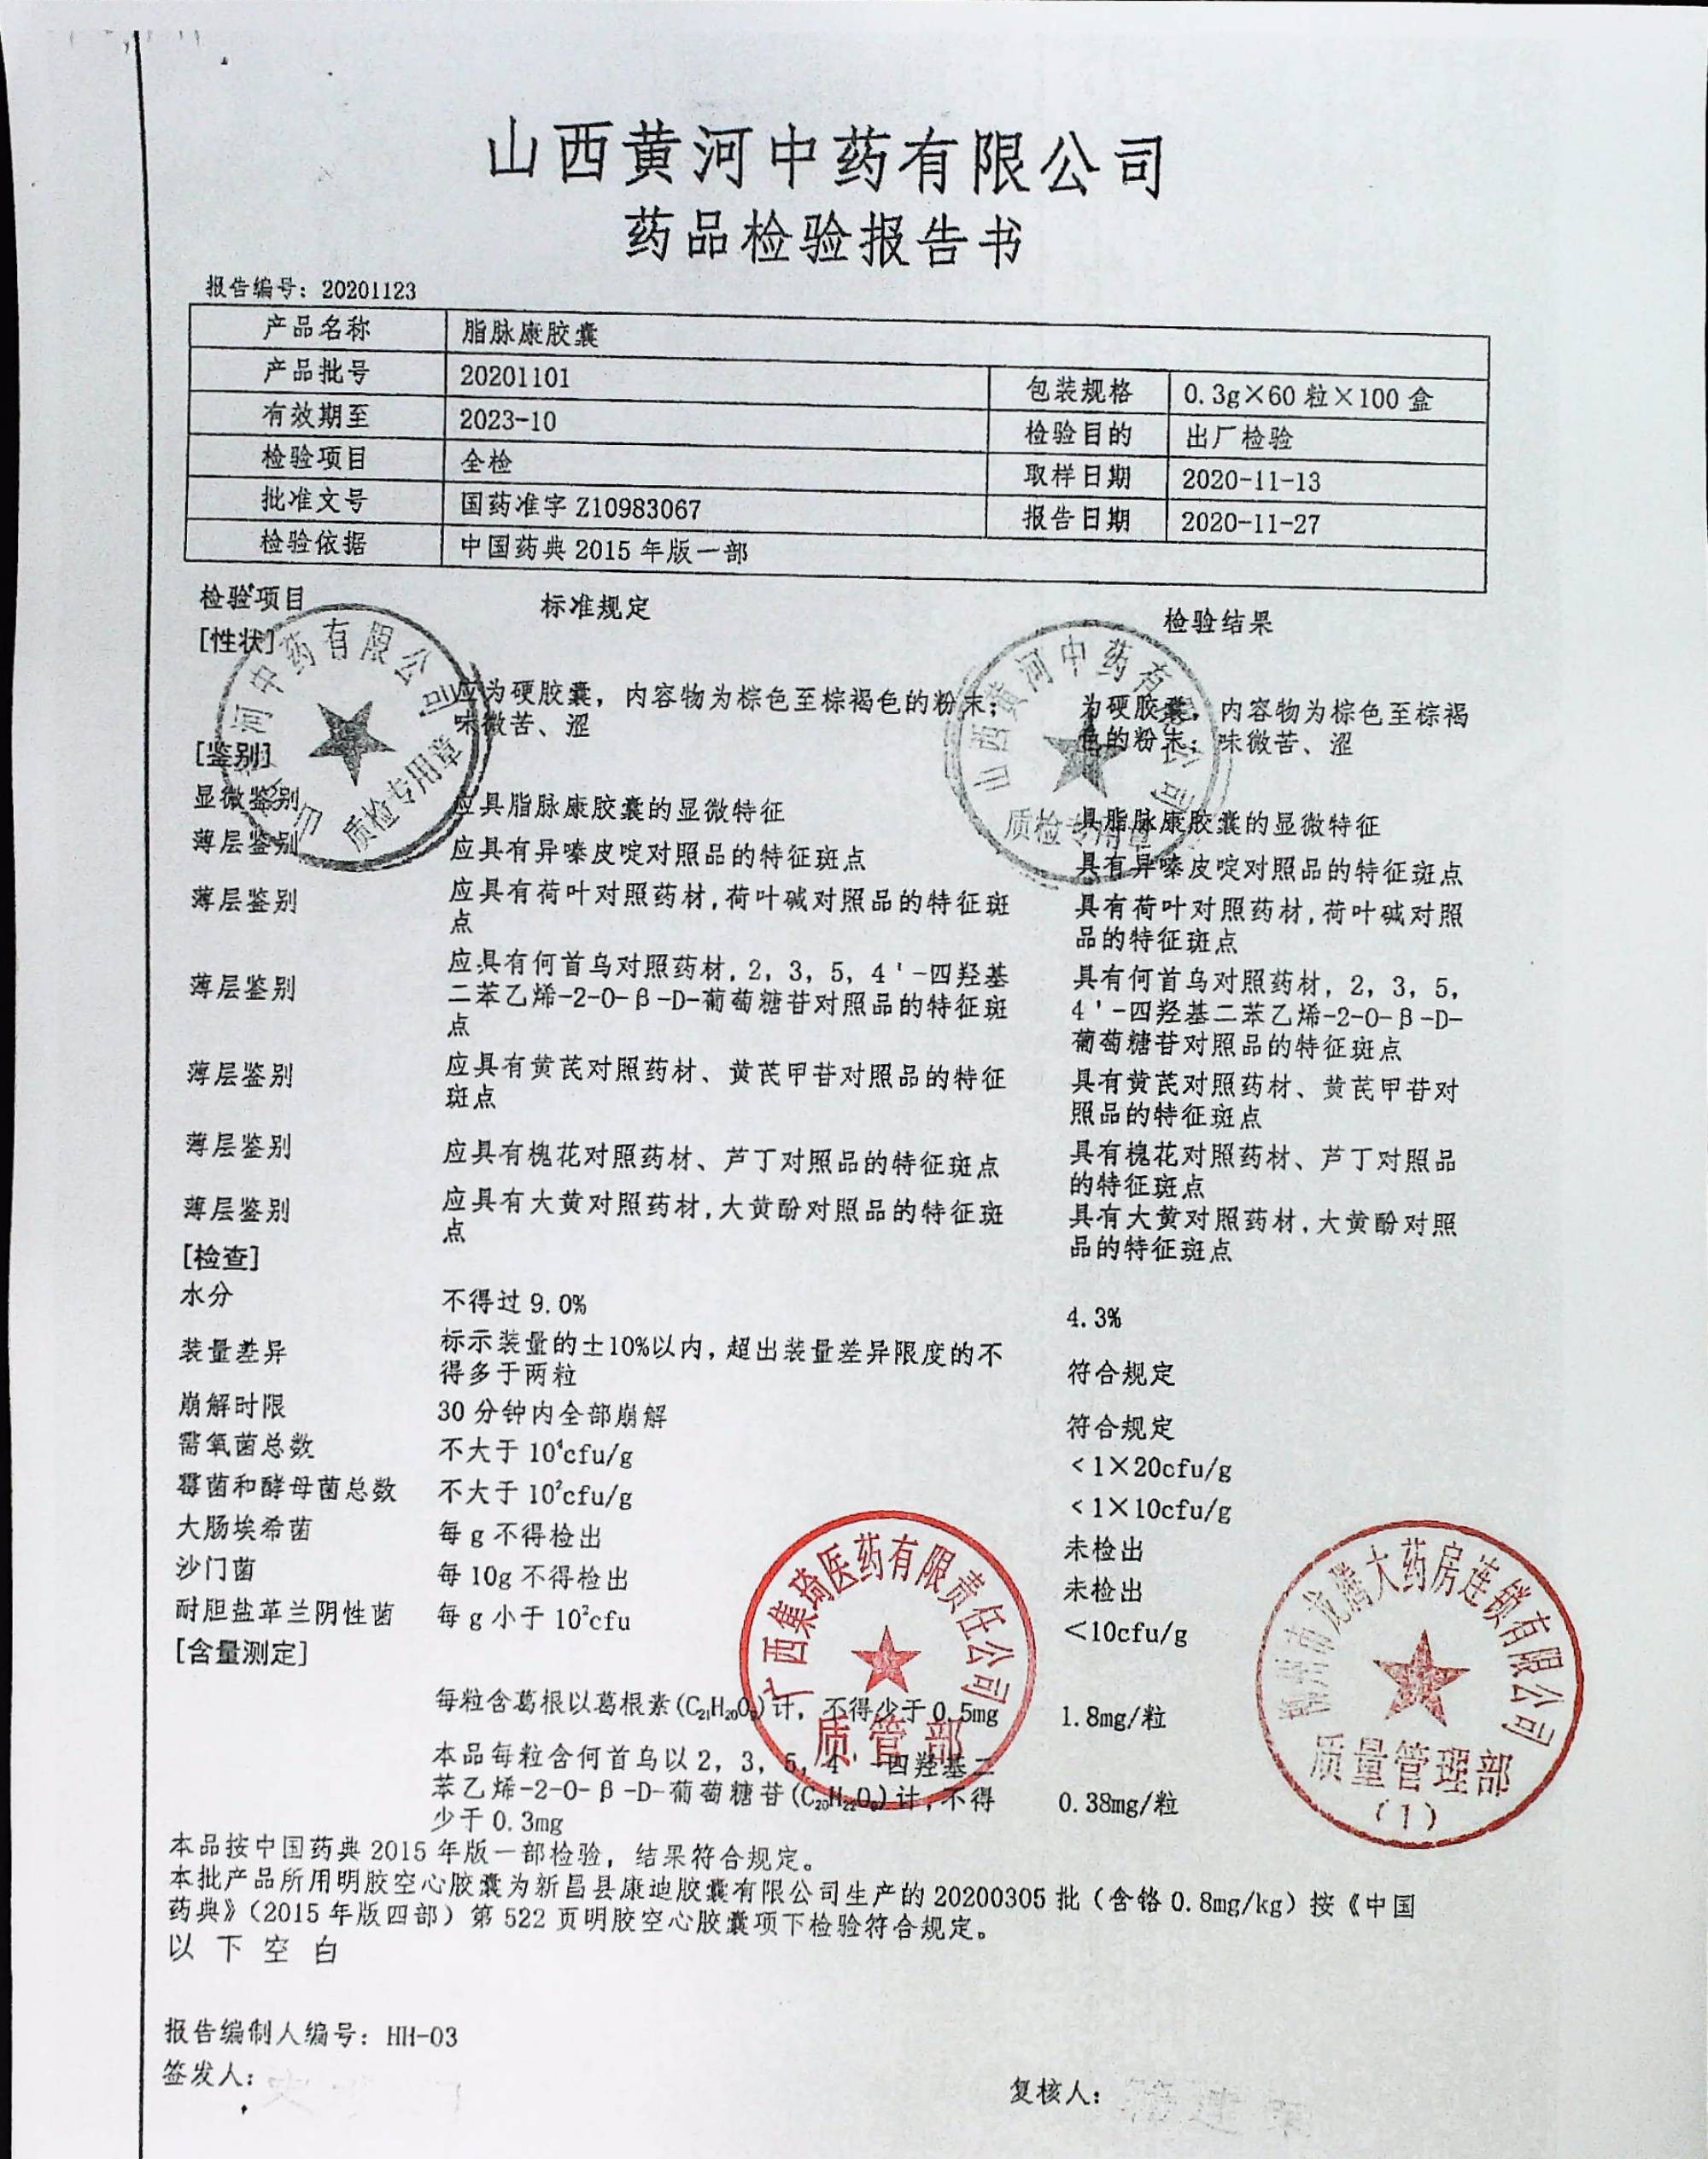 山西黄河中药有限公司
药品检验报告书
报告编号：20201123
产品名称 脂脉康胶囊
产品批号 20201101 包装规格 0.3g×60粒×100盒
有效期至 2023-10 检验目的 出厂检验
检验项目 全检 取样日期 2020-11-13
批准文号 国药准字 Z10983067 报告日期 2020-11-27
检验依据 中国药典 2015 年版一部
检验项目 标准规定 检验结果
[性状]
应为硬胶囊，内容物为棕色至棕褐色的粉末；
味微苦、涩
为硬胶囊，内容物为棕色至棕褐
色的粉末；味微苦、涩
[鉴别]
显微鉴别 应具脂脉康胶囊的显微特征 具脂脉康胶囊的显微特征
薄层鉴别 应具有异嗪皮啶对照品的特征斑点 具有异嗪皮啶对照品的特征斑点
薄层鉴别 应具有荷叶对照药材,荷叶碱对照品的特征斑
点
具有荷叶对照药材,荷叶碱对照
品的特征斑点
薄层鉴别 应具有何首乌对照药材，2，3，5，4'-四羟基
二苯乙烯-2-O-β-D-葡萄糖苷对照品的特征斑
点
具有何首乌对照药材，2，3，5，
4'-四羟基二苯乙烯-2-O-β-D-
葡萄糖苷对照品的特征斑点
薄层鉴别 应具有黄芪对照药材、黄芪甲苷对照品的特征
斑点
具有黄芪对照药材、黄芪甲苷对
照品的特征斑点
薄层鉴别 应具有槐花对照药材、芦丁对照品的特征斑点
具有槐花对照药材、芦丁对照品
的特征斑点
薄层鉴别 应具有大黄对照药材,大黄酚对照品的特征斑
点
具有大黄对照药材,大黄酚对照
品的特征斑点
[检查]
水分 不得过 9.0% 4.3%
装量差异 标示装量的±10%以内，超出装量差异限度的不
得多于两粒
符合规定
崩解时限 30 分钟内全部崩解 符合规定
需氧菌总数 不大于 10⁴cfu/g <1×20cfu/g
霉菌和酵母菌总数 不大于 10²cfu/g <1×10cfu/g
大肠埃希菌 每 g 不得检出 未检出
沙门菌 每 10g 不得检出 未检出
耐胆盐革兰阴性菌 每 g 小于 10²cfu <10cfu/g
[含量测定]
每粒含葛根以葛根素(C₂₁H₂₀O₉)计，不得少于 0.5mg 1.8mg/粒
本品每粒含何首乌以 2，3，5，4'-四羟基二
苯乙烯-2-O-β-D-葡萄糖苷(C₂₀H₂₂O₉)计，不得
少于 0.3mg
0.38mg/粒
本品按中国药典 2015 年版一部检验，结果符合规定。
本批产品所用明胶空心胶囊为新昌县康迪胶囊有限公司生产的 20200305 批（含铬 0.8mg/kg）按《中国
药典》（2015 年版四部）第 522 页明胶空心胶囊项下检验符合规定。
以下空白
报告编制人编号：HH-03
签发人：
复核人：
河中药有限公司
质检专用章
山西黄河中药有限公司
质检专用章
广西集琦医药有限责任公司
质管部
市龙腾大药房连锁有限公司
质量管理部
（1）